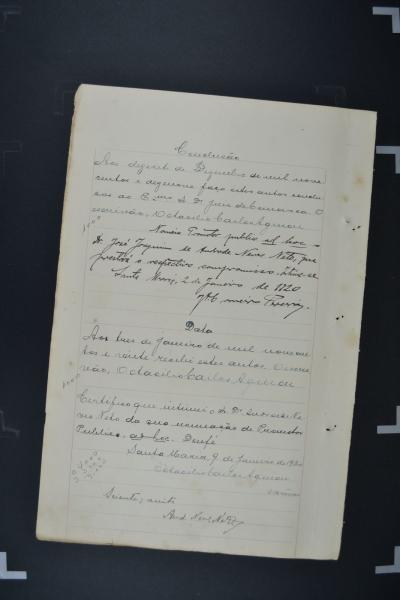 Conclusão
Aos dezoito de Dezembro de mil nove
centos e dezenove faço estes autos conclu
sos ao Exmo Sr Dr Juiz de Comarca. O
escrivão, Octacilio Carlos Aguiar
Nomeio Promotor publico ad hoc o
Dr. José Joaquim de Andrade Neves Netto, que
prestará o respectivo compromisso. Intime-se
Santa Maria, 2 de Janeiro de 1920
Data
Aos tres de Janeiro de mil novecen
tos e vinte recebi estes autos. O escri
vão, Octacilio Carlos Aguiar
Certifico que intimei o Dr.
Neto da sua nomeação de Promotor
Publico, ad hoc. Dou fé
Santa Maria, 9 de Janeiro de 1920
Octacilio Carlos Aguiar
Sciente, aceito
And Neves Netto